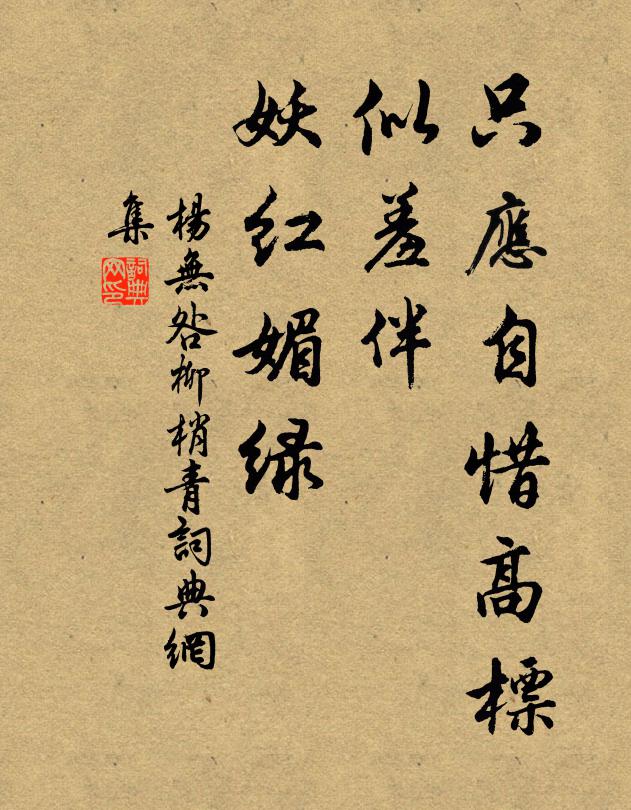 只應自惜高標
似羞伴
妖紅媚綠
楊無咎柳梢青詞典網
集
詞典
网印